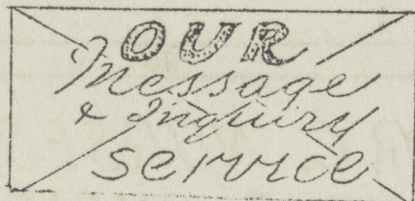 OUR
Message
& Inquiry
service